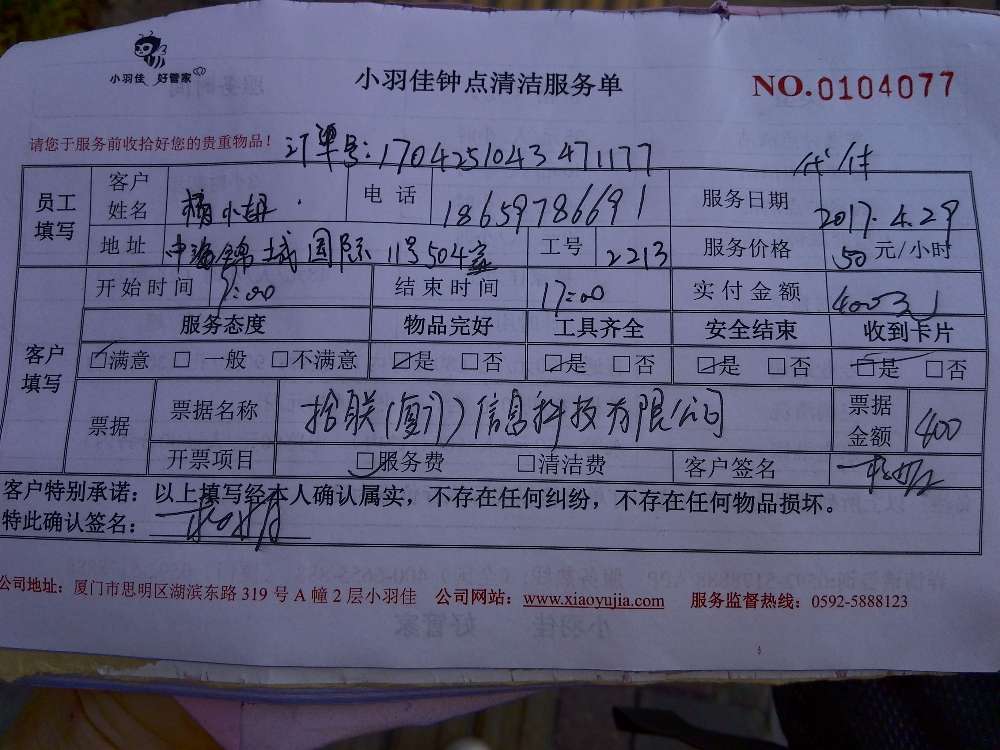 小羽佳 好管家
小羽佳钟点清洁服务单
NO.0104077
请您于服务前收拾好您的贵重物品！
订单号:1704251043471177
员工填写
客户姓名
电话 18659786691
服务日期 2017.4.29
地址 中海锦城国际 11号504室
工号 2213
服务价格 50元/小时
客户填写
开始时间 9:00
结束时间 17:00
实付金额 400元
服务态度 物品完好 工具齐全 安全结束 收到卡片
☑满意 □一般 □不满意 ☑是 □否 ☑是 □否 ☑是 □否 ☑是 □否
票据
票据名称 拾联(厦门)信息科技有限公司
票据金额 400
开票项目 ☑服务费 □清洁费 客户签名
客户特别承诺：以上填写经本人确认属实，不存在任何纠纷，不存在任何物品损坏。
特此确认签名：
公司地址：厦门市思明区湖滨东路 319 号 A 幢 2 层小羽佳 公司网站：www.xiaoyujia.com 服务监督热线：0592-5888123